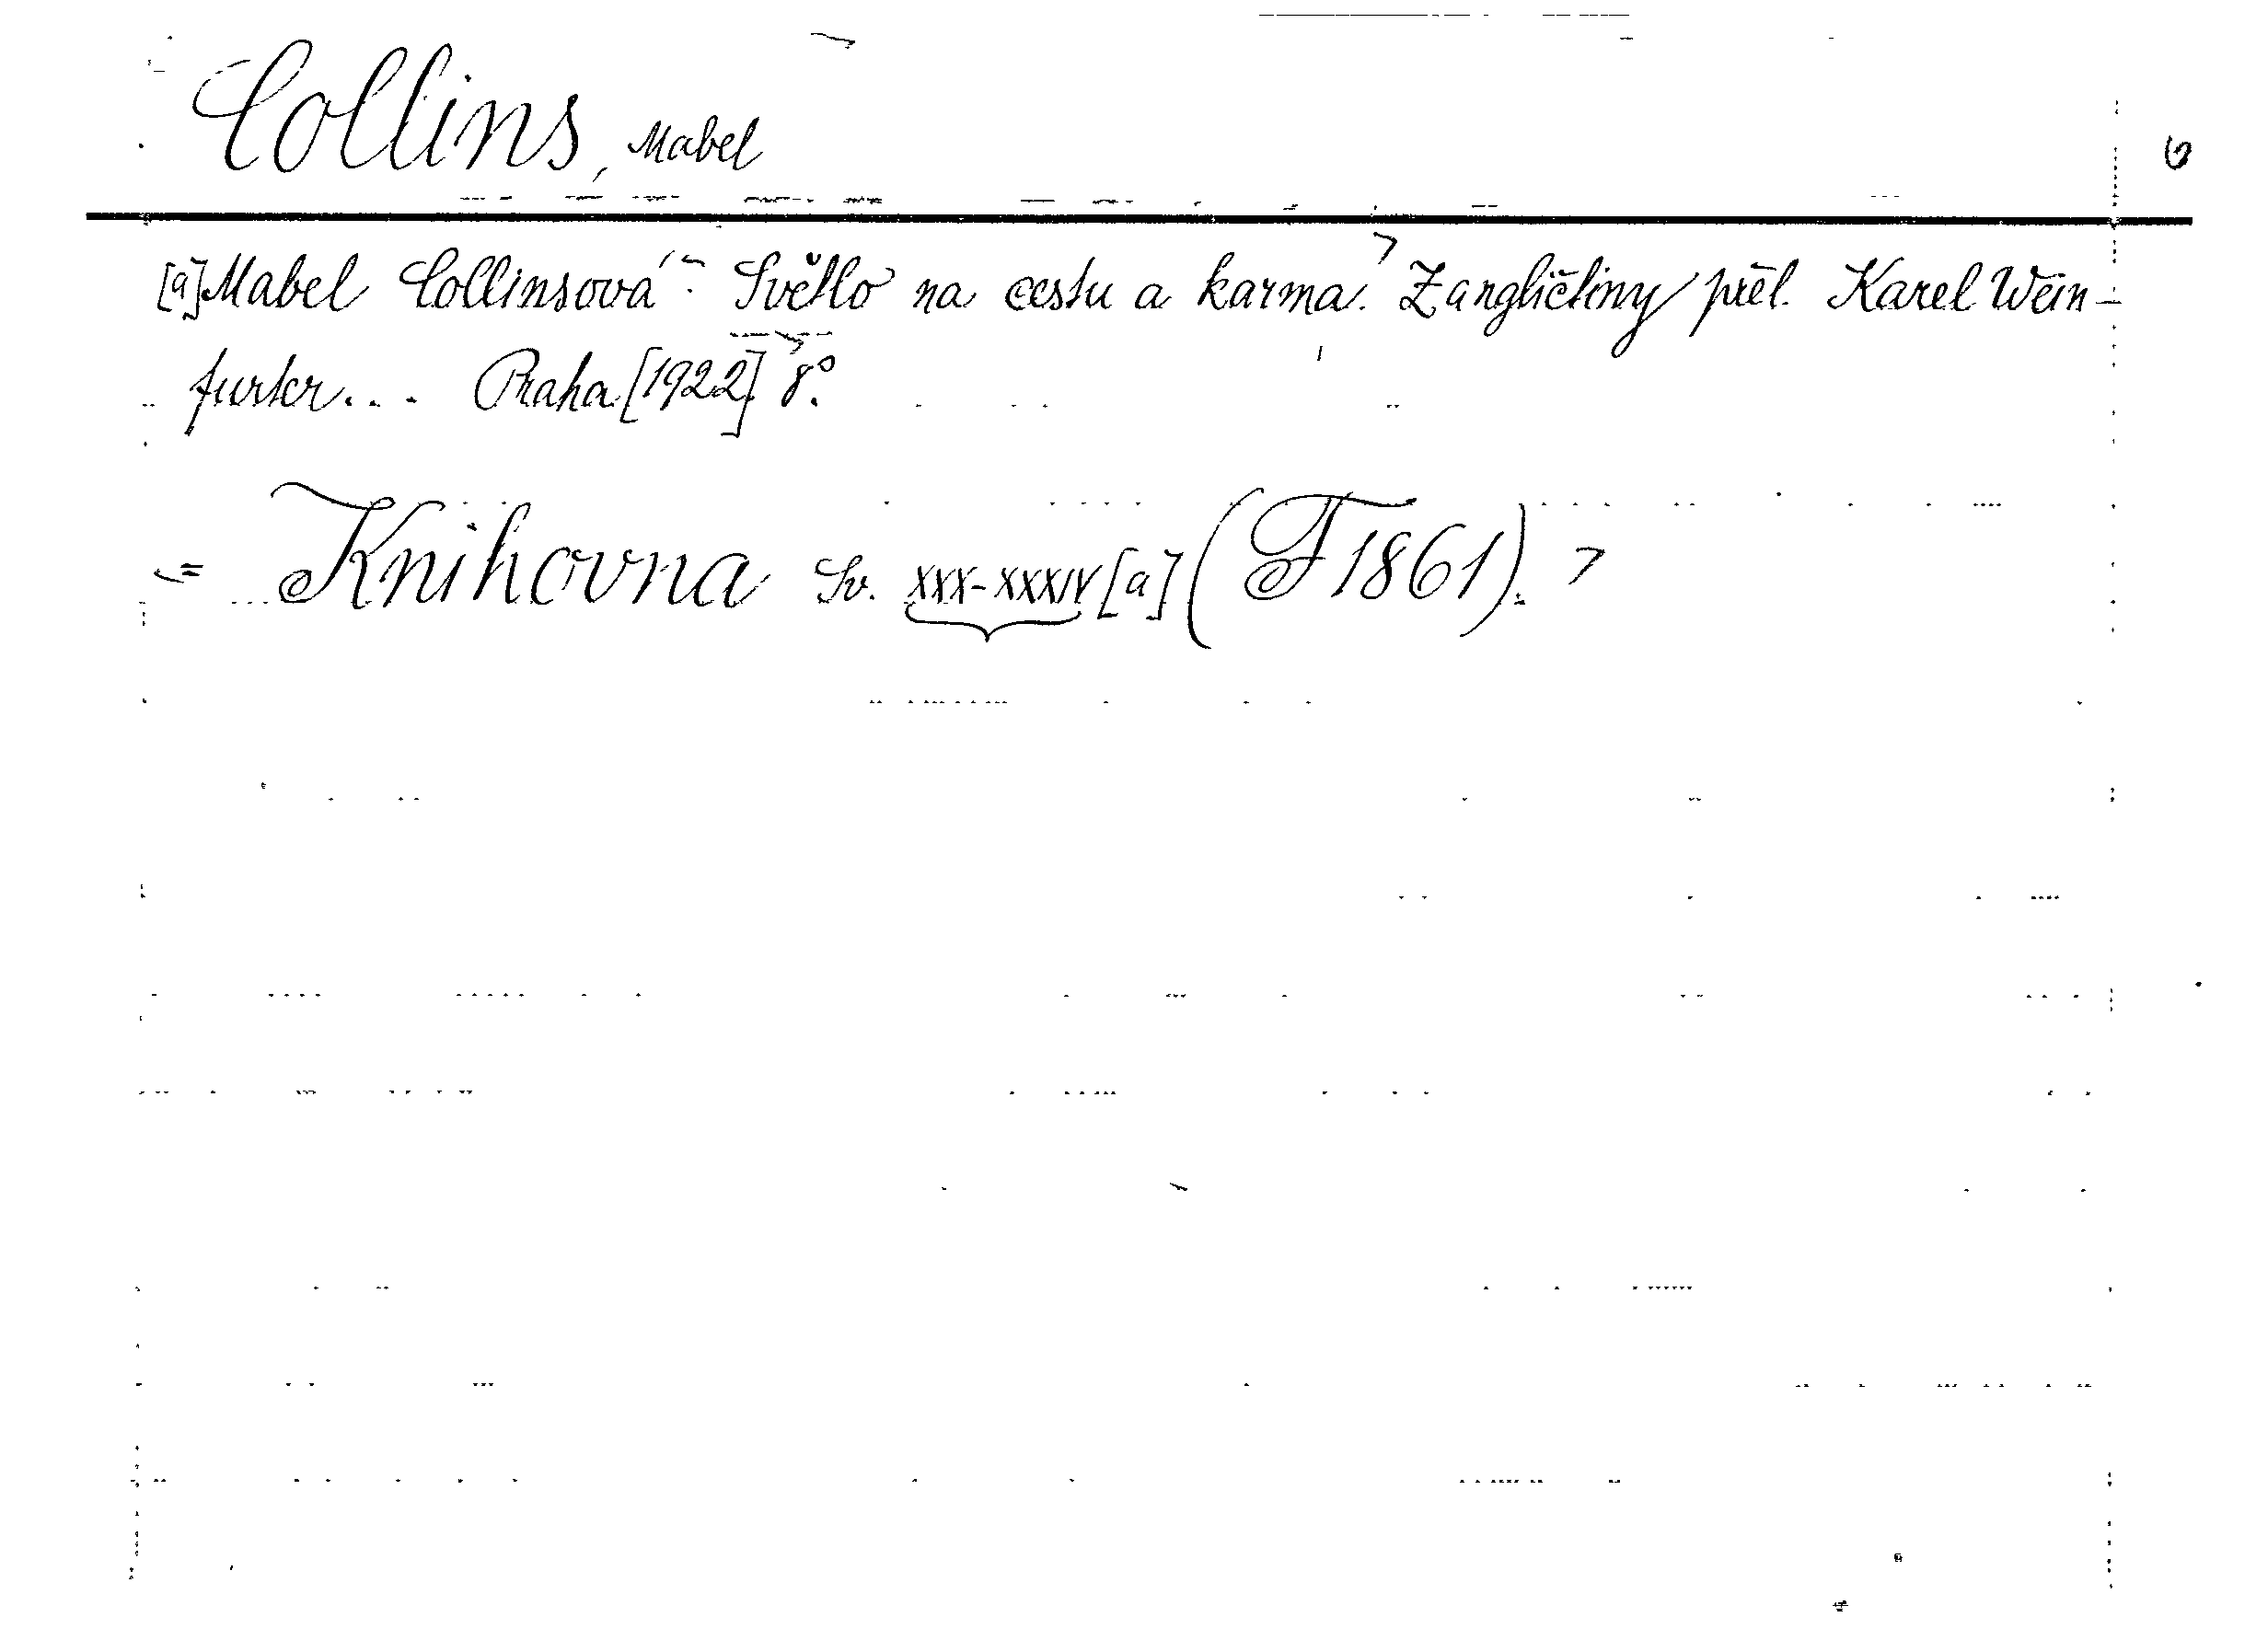 Collins, Mabel
[a] Mabel Collinsová: Světlo na cestu a karma. Z angličtiny přel. Karel Wein-
furter... Praha [1922]. 8°.
= Knihovna Sv. XXX-XXXIV [a] (F 1861).